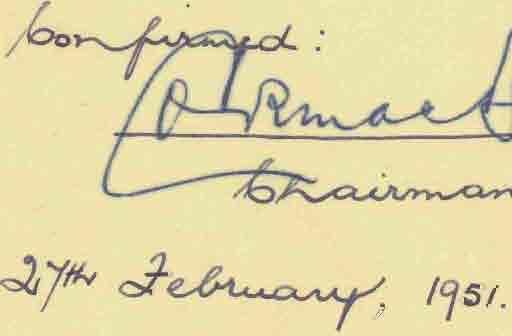 Confirmed:
Chairman
27th February, 1951.